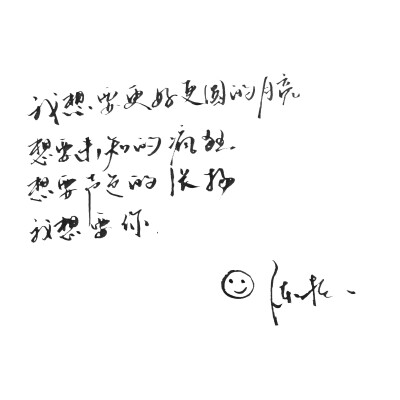 我想要更好更圆的月亮
想要未知的疯狂.
想要声色的张扬
我想要你.